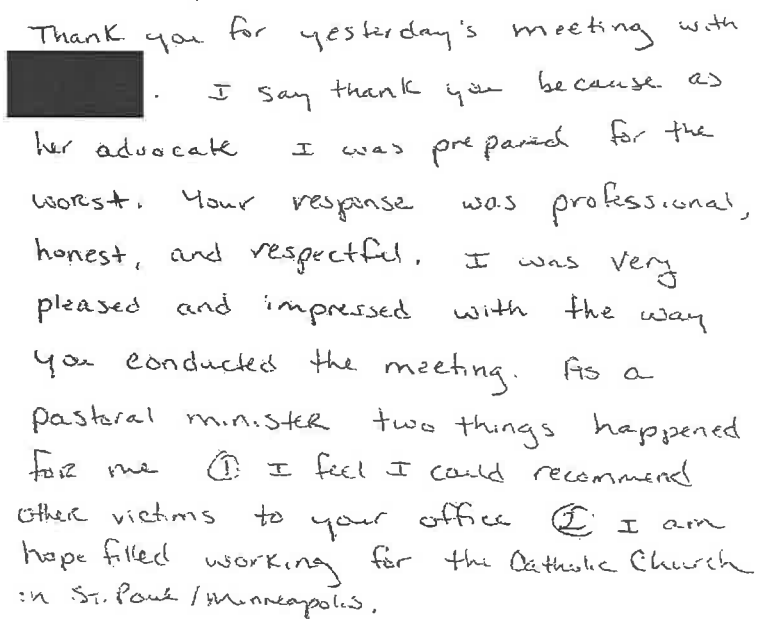 Thank you for yesterday's meeting with
. I say thank you because as
her advocate I was prepared for the
worst. Your response was professional,
honest, and respectful. I was very
pleased and impressed with the way
you conducted the meeting. As a
pastoral minister two things happened
for me ① I feel I could recommend
other victims to your office ② I am
hope filled working for the Catholic Church
in St. Paul/Minneapolis.